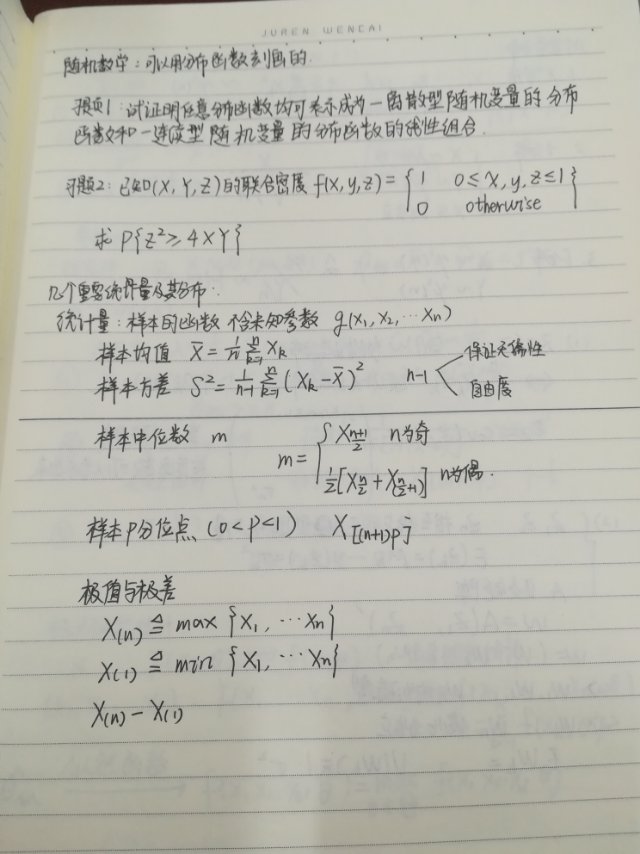 JUREN WENCAI
随机数学：可以用分布函数刻画的.
习题1：试证明任意分布函数均可表示成为一离散型随机变量的分布
函数和一连续型随机变量的分布函数的线性组合.
习题2：已知(X,Y,Z)的联合密度 f(x,y,z) = { 1 0≤x,y,z≤1
0 otherwise }
求 P{Z²≥4XY}
几个重要统计量及其分布.
统计量：样本的函数 不含未知参数 g(x₁,x₂,…xₙ)
样本均值 X̄ = 1/n Σₖ₌₁ⁿ Xₖ
样本方差 S² = 1/(n-1) Σₖ₌₁ⁿ (Xₖ - X̄)² n-1 保证无偏性
自由度
样本中位数 m m = { X_(n+1)/2 n为奇
1/2[X_n/2 + X_(n/2+1)] n为偶.
样本P分位点 (0<P<1) X_[(n+1)P]
极值与极差
X₍ₙ₎ ≜ max {X₁, …Xₙ}
X₍₁₎ ≜ min {X₁, …Xₙ}
X₍ₙ₎ - X₍₁₎